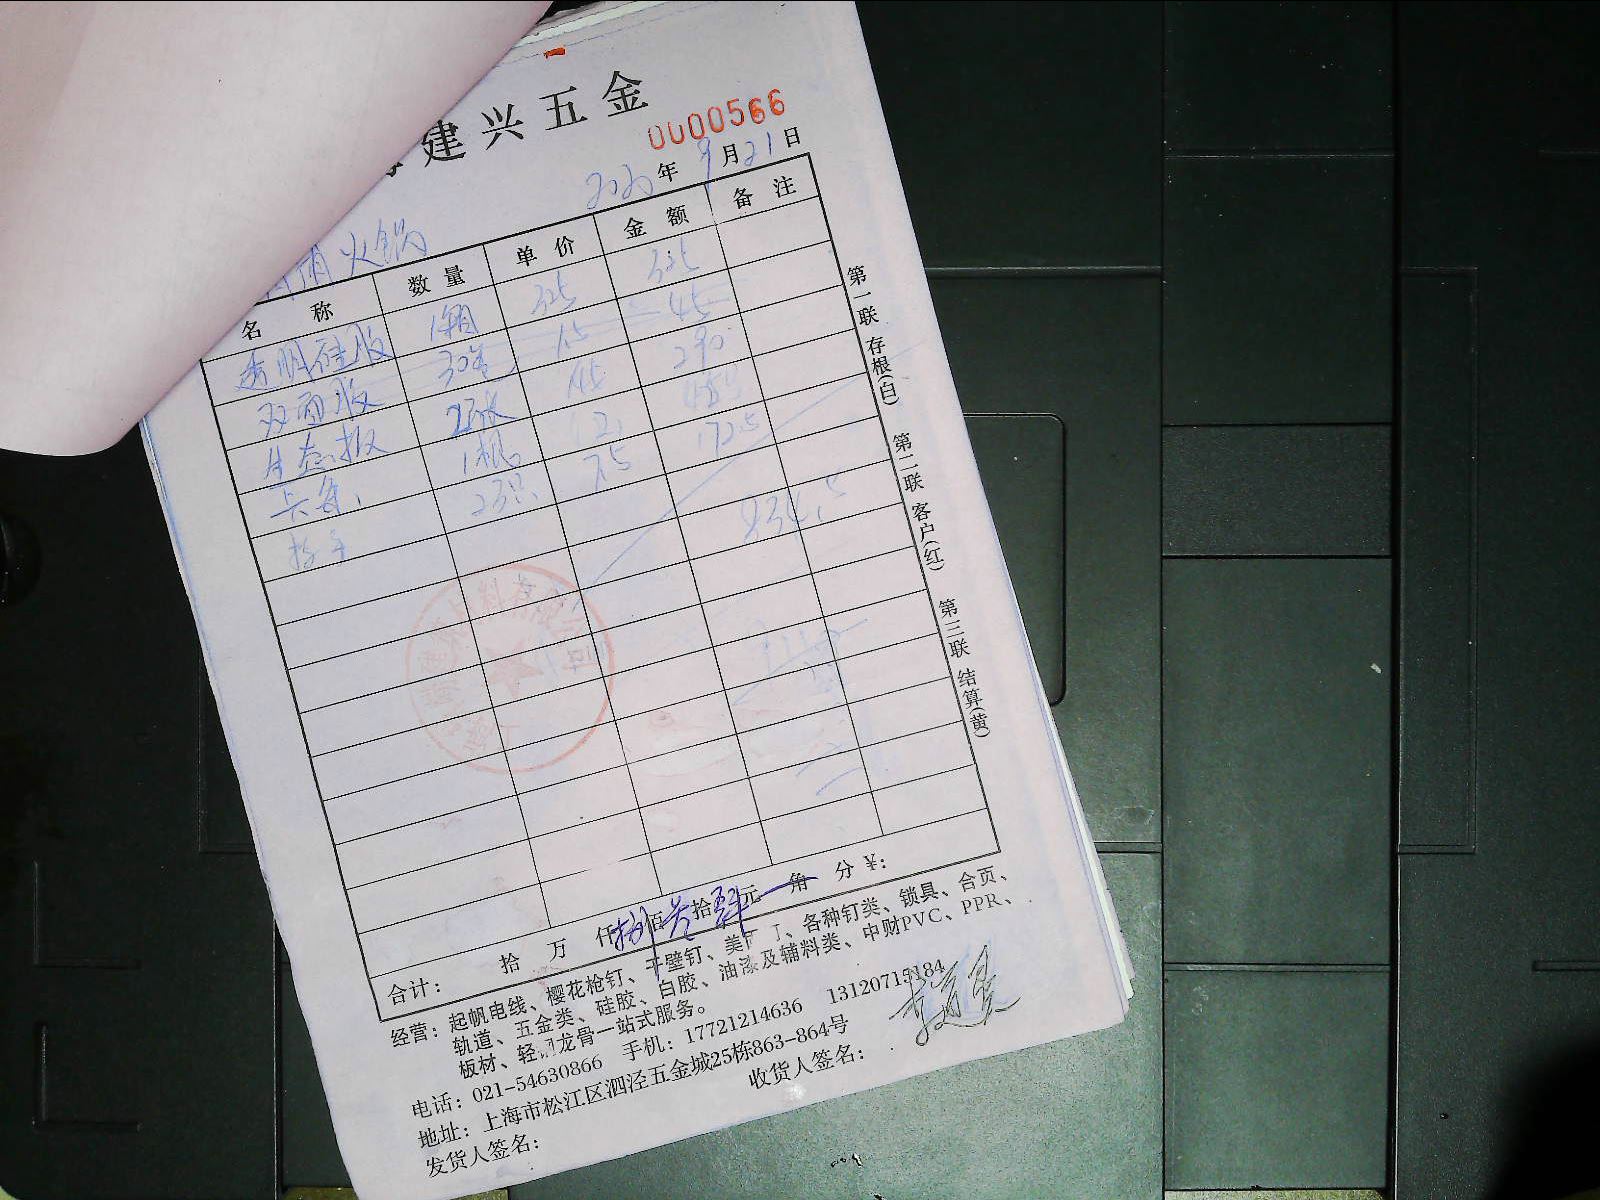 建兴五金
0000566
2020年9月21日
火锅
名称 数量 单价 金额 备注
透明硅胶 1箱 325 325
双面胶 30卷 1.5 45
生态板 2张 145 290
长条 1根
拉手 23只 7.5 172.5
834.5
合计: 拾 万 仟 捌佰叁拾肆元 角 分 ¥:
经营: 起帆电线、樱花枪钉、干壁钉、美 、各种钉类、锁具、合页、
轨道、五金类、硅胶、白胶、油漆及辅料类、中财PVC、PPR、
板材、轻钢龙骨一站式服务。
电话: 021-54630866 手机: 17721214636 13120715184
地址: 上海市松江区泗泾五金城25栋863-864号
发货人签名: 收货人签名:
第一联 存根(白) 第二联 客户(红) 第三联 结算(黄)